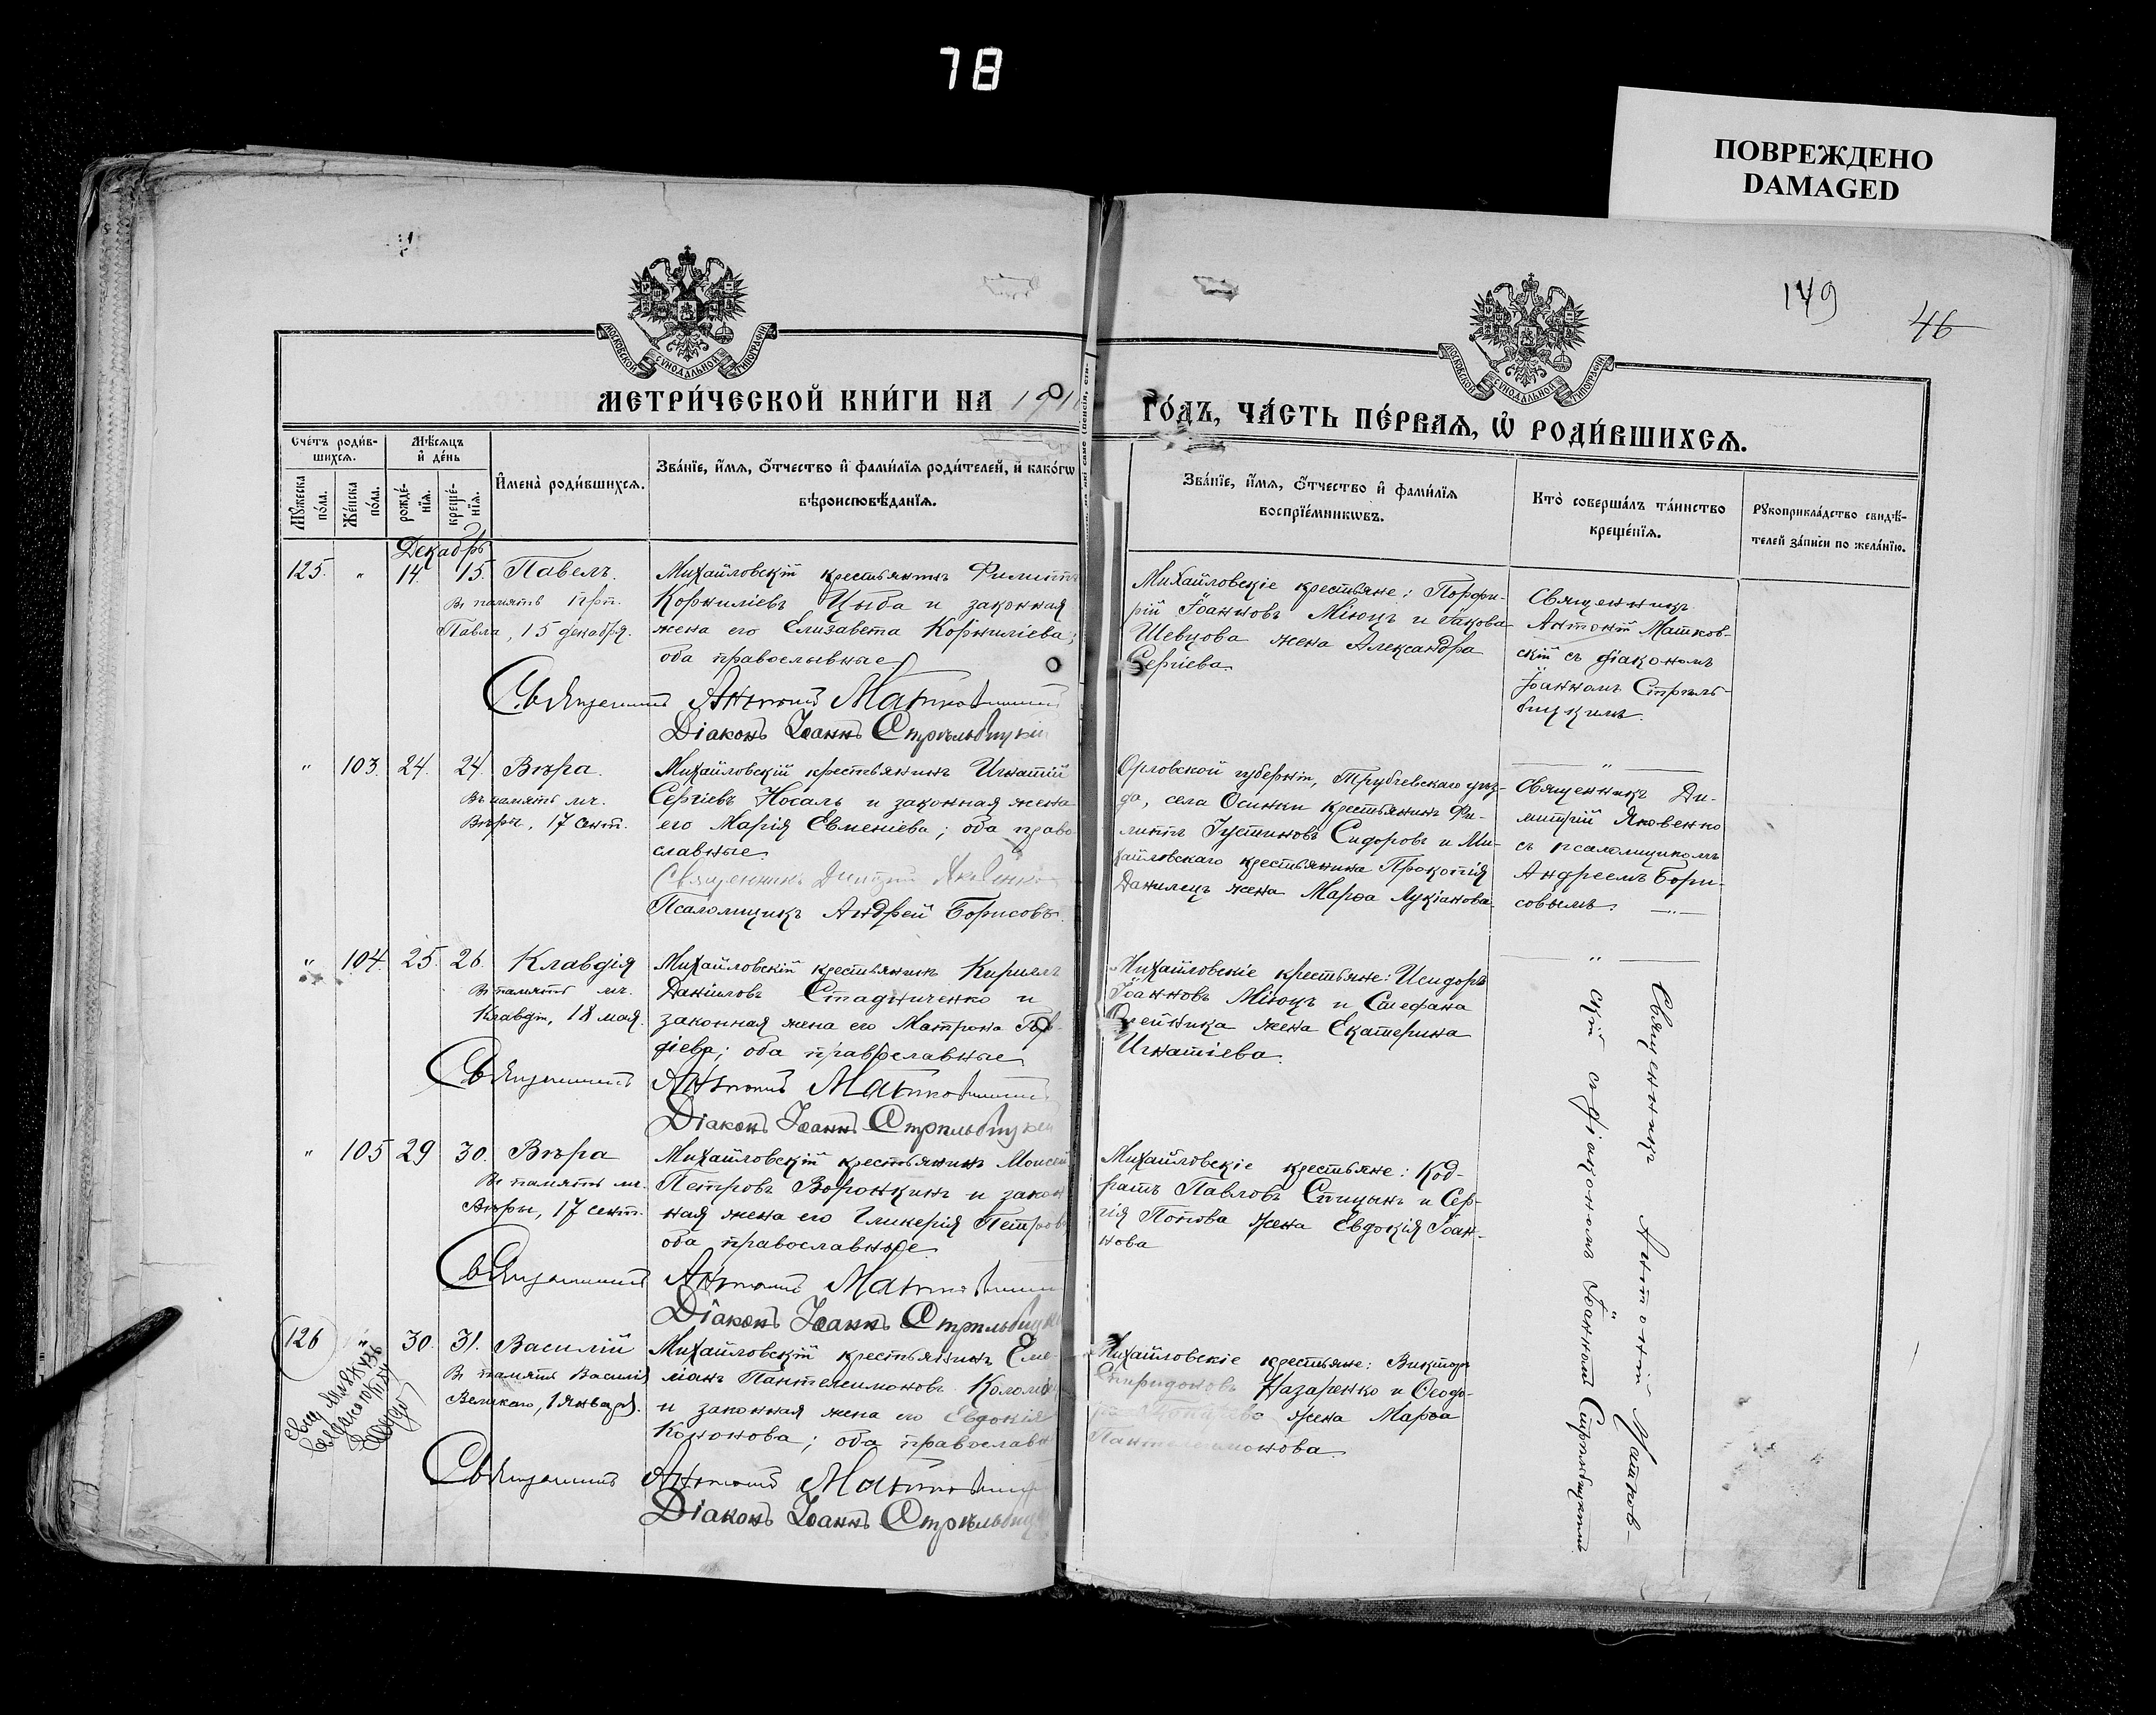 78
ПОВРЕЖДЕНО
DAMAGED
149
46
МОСКОВСКОЙ СѴНОДАЛЬНОЙ ТИПОГРАФІИ
МОСКОВСКОЙ СѴНОДАЛЬНОЙ ТИПОГРАФІИ
МЕТРИ́ЧЕСКОЙ КНИ́ГИ НА 191
ГО́ДЪ, ЧА́СТЬ ПЕ́РВАѦ, Ѽ РОДИ́ВШИХСѦ.
Сче́тъ роди́в-
шихсѧ.
Мѣ́сѧцъ
и҆ де́нь
Мꙋ́жеска по́ла.
Же́нска по́ла.
рожде́-нїѧ.
креще́-нїѧ.
И҆мена̀ роди́вшихсѧ.
Зва́нїе, и҆́мѧ, ѻ҆́тчество и҆ фами́лїѧ роди́телей, и҆ како́гѡ
вѣроисповѣ́данїѧ.
Зва́нїе, и҆́мѧ, ѻ҆́тчество и҆ фами́лїѧ
воспрїе́мникѡвъ.
Кто̀ соверша́лъ та́инство
креще́нїѧ.
Рꙋкоприкла́дство свидѣ́-
телей за́писи по жела́нїю.
Декабрь
125. " 14. 15. Павелъ.
Въ память прп.
Павла, 15 декабря.
Михайловскій крестьянинъ Филиппъ
Корниліевъ Цыба и законная
жена его Елизавета Корниліева;
оба православные
Священникъ Антоній Матковскій
Діаконъ Іоаннъ Стрѣльбицкій
Михайловскіе крестьяне: Порфи-
рій Іоанновъ Міюцъ и Іакова
Шевцова жена Александра
Сергіева.
Священникъ
Антоній Матков-
скій съ діакономъ
Іоанномъ Стрѣль-
бицкимъ.
" 103. 24. 24. Вѣра.
Въ память мч.
Вѣры, 17 сент.
Михайловскій крестьянинъ Игнатій
Сергіевъ Носаль и законная жена
его Марія Евменіева; оба право
славные.
Священникъ Димитрій Яковенко
Псаломщикъ Андрей Борисовъ.
Орловской губерніи, Трубчевскаго уѣз-
да, села Осинки крестьянинъ Фи-
липпъ Іустиновъ Сидоровъ и Ми-
хайловскаго крестьянина Прокопія
Данилецъ жена Марѳа Лукіанова.
"
Священникъ Ди-
митрій Яковенко
съ псаломщикомъ
Андреемъ Бори-
совымъ.
" 104. 25. 26. Клавдія
Въ память мч.
Клавдіи, 18 мая.
Михайловскій крестьянинъ Кириллъ
Даніиловъ Стадниченко и
законная жена его Матрона
діева; оба православные
Священникъ Антоній Матковскій
Діаконъ Іоаннъ Стрѣльбицкій
Михайловскіе крестьяне: Исидоръ
Іоанновъ Міюцъ и Стефана
Олейника жена Екатерина
Игнатіева.
"
Священникъ Антоній Матков-
скій съ діакономъ Іоанномъ Стрѣльбицкимъ
" 105 29 30. Вѣра
Въ память мч.
Вѣры, 17 сент.
Михайловскій крестьянинъ Моисей
Петровъ Воронкинъ и закон
ная жена его Гликерія Петрова
оба православные
Священникъ Антоній Матковскій
Діаконъ Іоаннъ Стрѣльбицкій
Михайловскіе крестьяне: Код-
ратъ Павловъ Спицынъ и Сер-
гія Попова жена Евдокія Іоан-
нова
126 " 30. 31. Василій
Въ память Василія
Великаго, 1 января.
Михайловскій крестьянинъ Еме-
ліанъ Пантелеимоновъ
и законная жена его Евдокія
Кононова; оба православн
Священникъ Антоній Матковскій
Діаконъ Іоаннъ Стрѣльбицкій
Михайловскіе крестьяне: Викторъ
Спиридоновъ Назаренко и Ѳеодо-
жена Марѳа
Пантелеимонова.